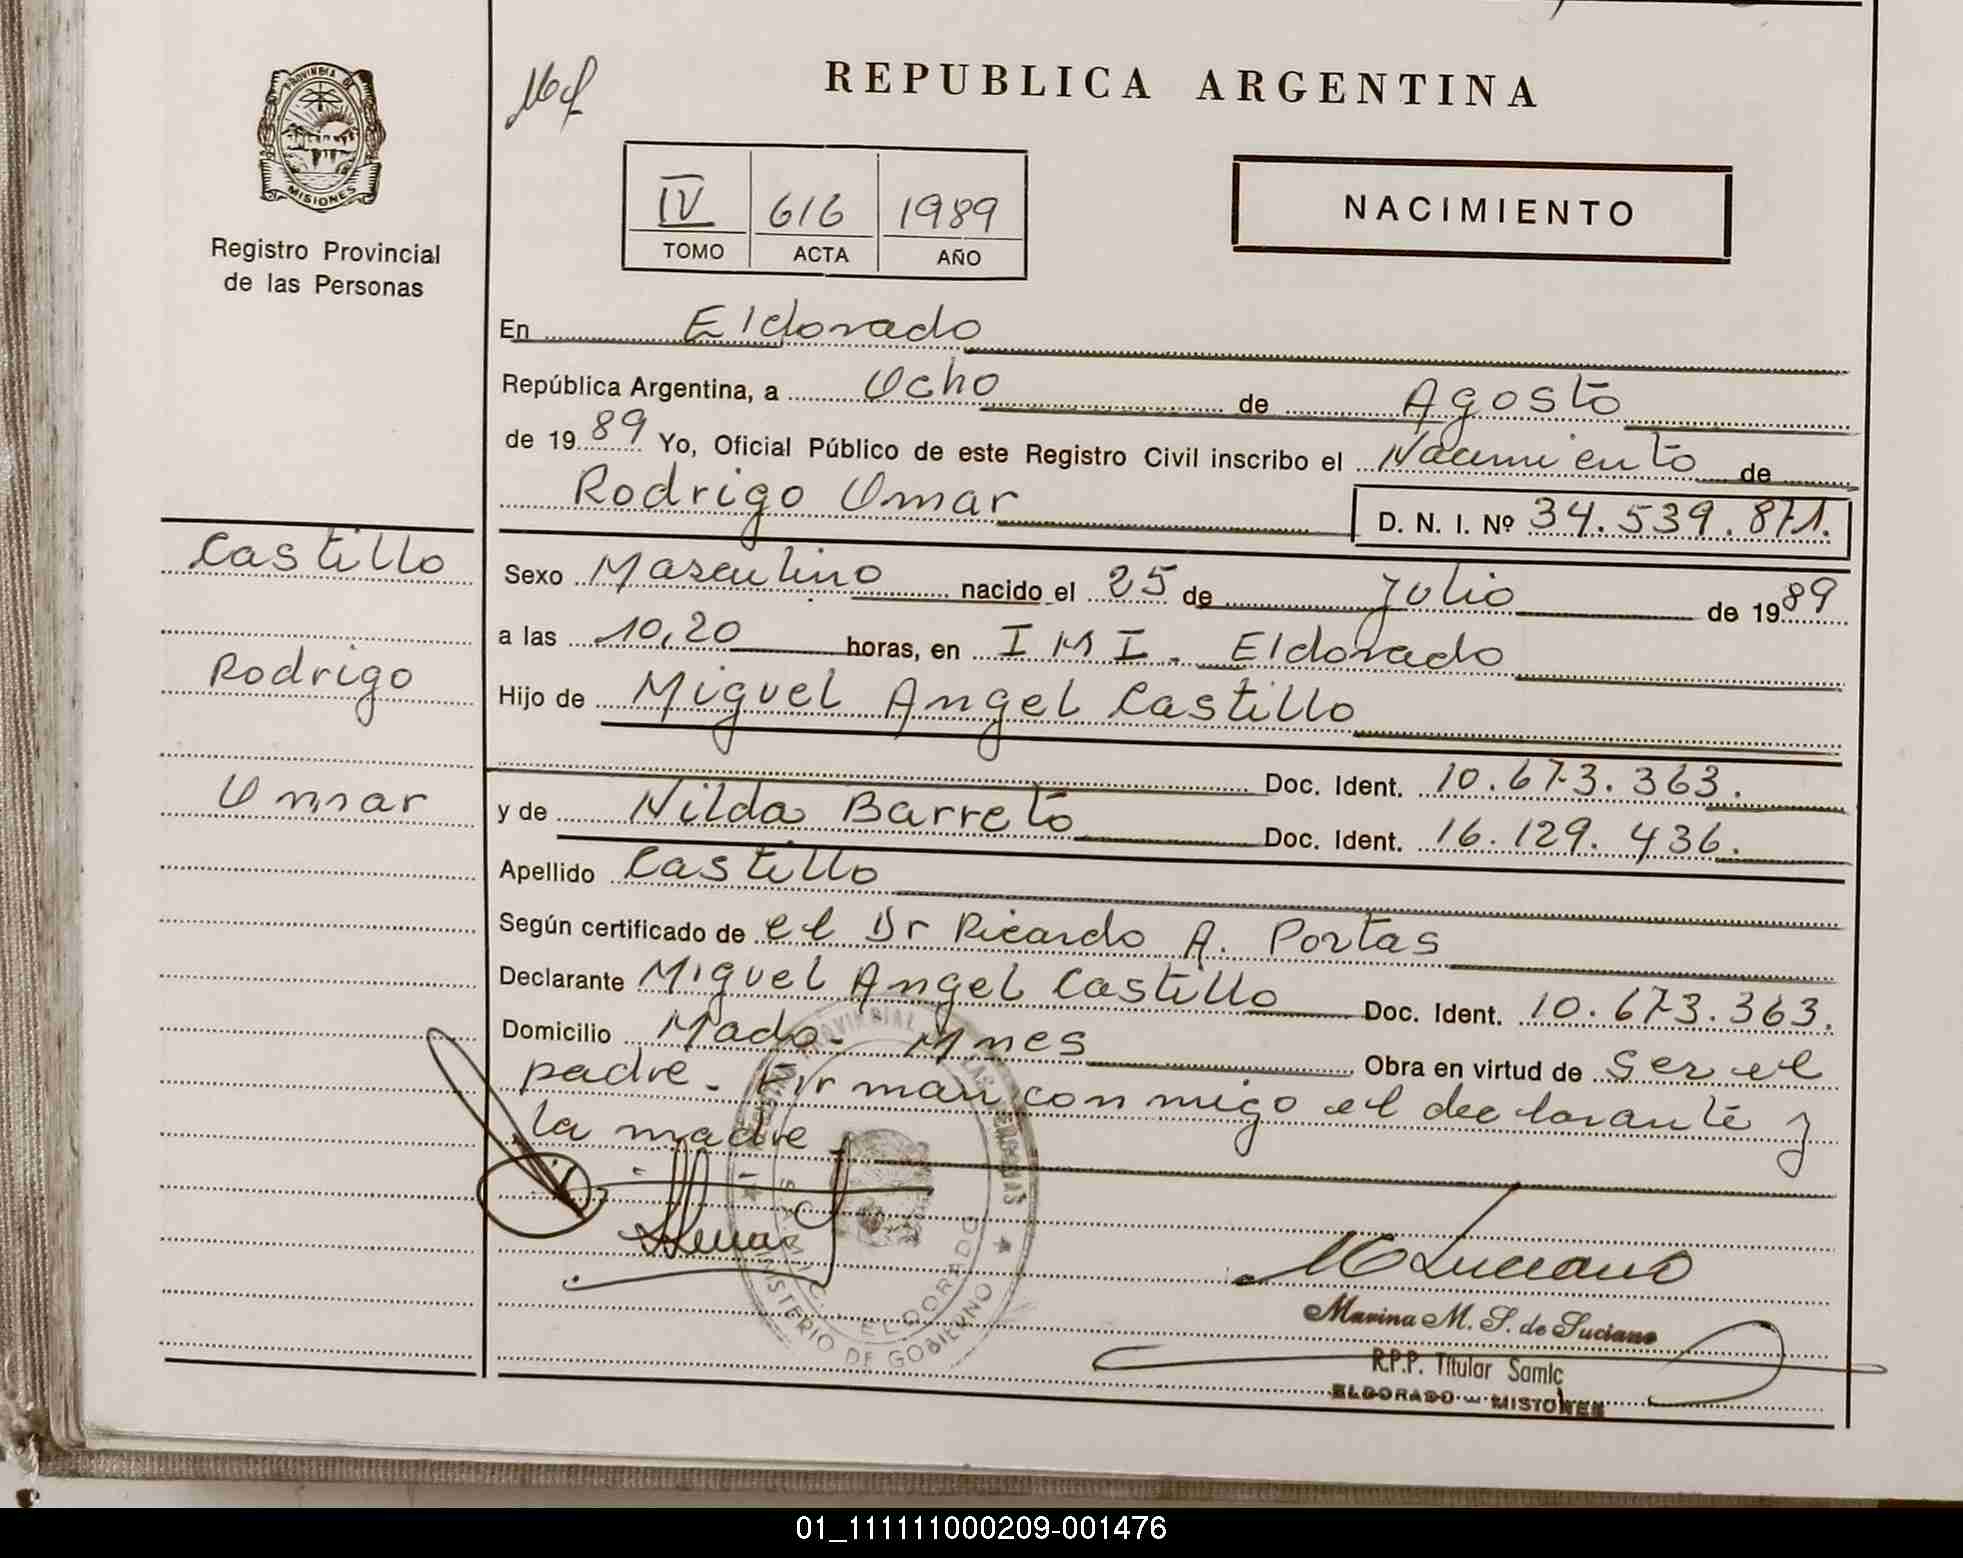 REPUBLICA ARGENTINA
PROVINCIA DE
MISIONES
Registro Provincial
de las Personas
IV 616 1989
TOMO ACTA AÑO
NACIMIENTO
En Eldorado
República Argentina, a Ocho de Agosto
de 1989 Yo, Oficial Público de este Registro Civil inscribo el Nacimiento de
Rodrigo Omar D. N. I. Nº 34.539.871.
Castillo
Rodrigo
Omar
Sexo Masculino nacido el 25 de Julio de 1989
a las 10,20 horas, en I M I. Eldorado
Hijo de Miguel Angel Castillo
Doc. Ident. 10.673.363.
y de Nilda Barreto Doc. Ident. 16.129.436.
Apellido Castillo
Según certificado de el Dr Ricardo A. Portas
Declarante Miguel Angel Castillo Doc. Ident. 10.673.363.
Domicilio Mado. Mnes Obra en virtud de ser el
padre. Firman conmigo el declarante y
la madre
MINISTERIO DE GOBIERNO
ELDORADO
M Luciano
Marina M. S. de Luciano
R.P.P. Titular Samic
ELDORADO - MISIONES
01_111111000209-001476